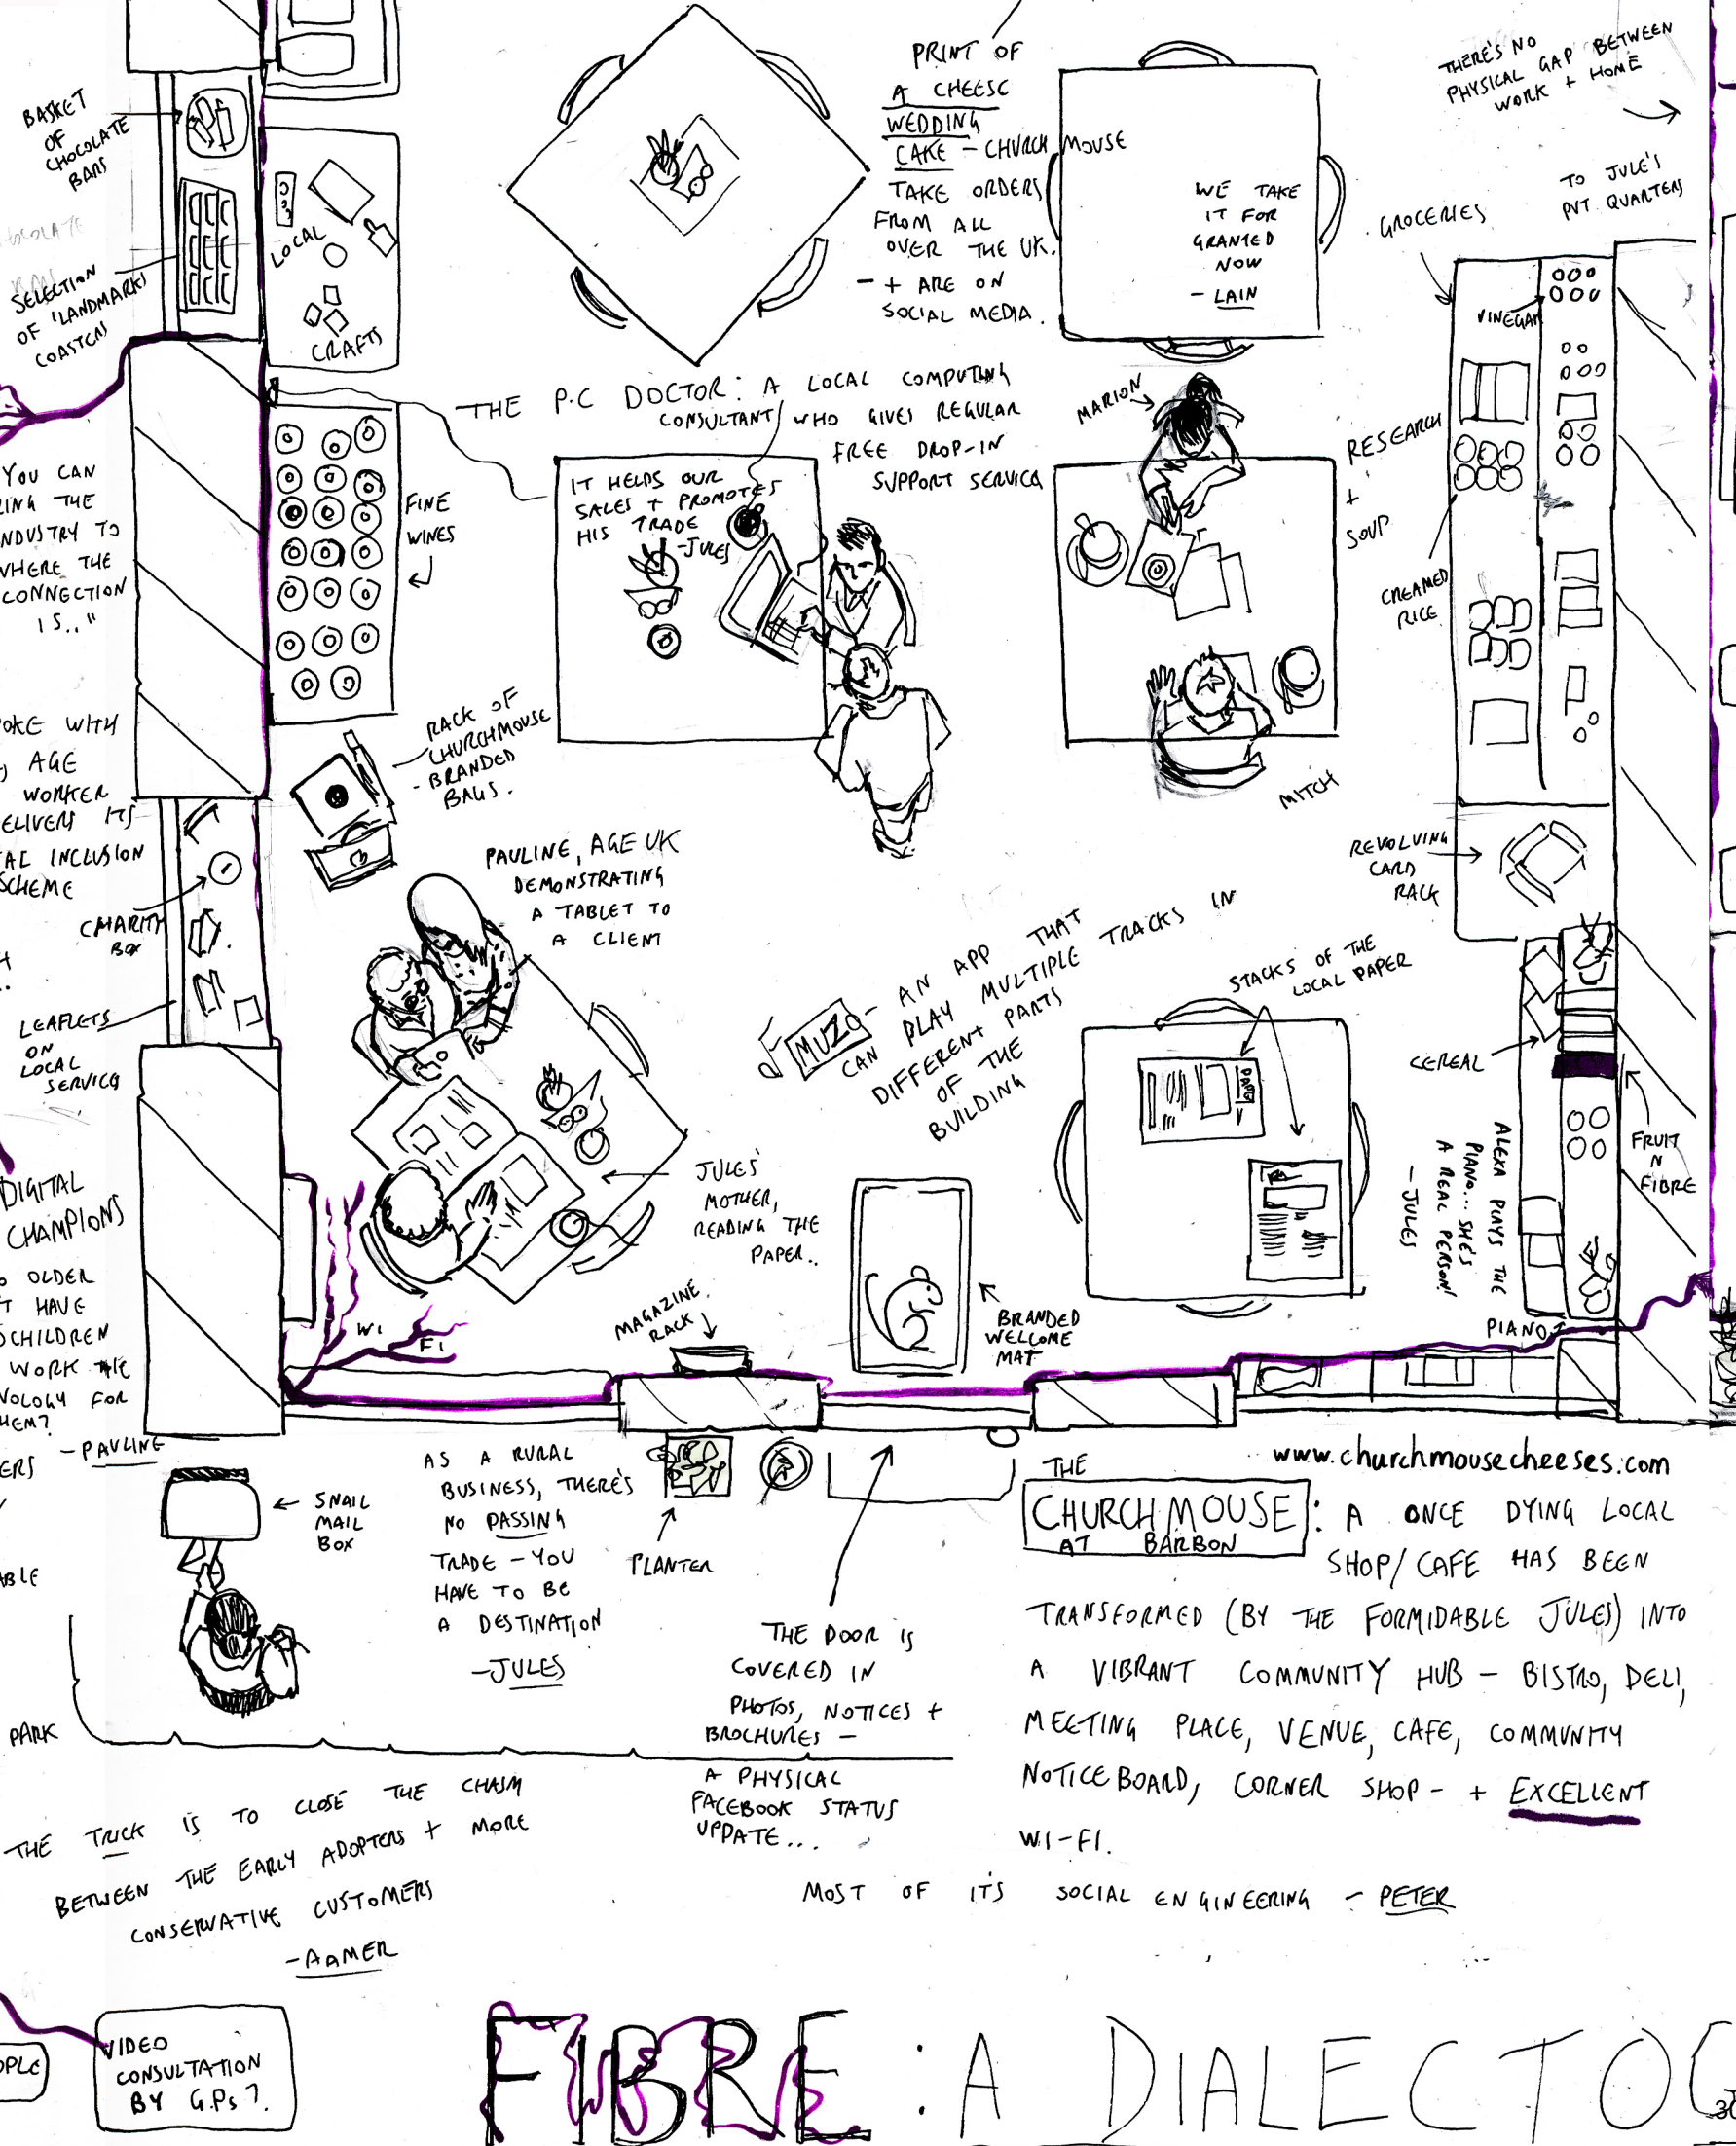 BASKET
OF
CHOCOLATE
BARS
SELECTION
OF 'LANDMARKS'
COASTERS
LOCAL
CRAFTS
PRINT OF
A CHEESE
WEDDING
CAKE - CHURCH MOUSE
TAKE ORDERS
FROM ALL
OVER THE UK.
- + ARE ON
SOCIAL MEDIA.
WE TAKE
IT FOR
GRANTED
NOW
- LAIN
THERE'S NO
PHYSICAL GAP BETWEEN
WORK + HOME
TO JULE'S
PVT QUARTERS
GROCERIES
VINEGAR
THE P.C DOCTOR: A LOCAL COMPUTING
CONSULTANT WHO GIVES REGULAR
FREE DROP-IN
SUPPORT SERVICE
MARION
RESEARCH
+
SOUP
CREAMED
RICE
YOU CAN
ING THE
NDUSTRY TO
WHERE THE
CONNECTION
IS.."
FINE
WINES
IT HELPS OUR
SALES + PROMOTES
HIS TRADE
-JULES
RACK OF
CHURCHMOUSE
- BRANDED
BAGS.
MITCH
OKE WITH
, AGE
WORKER
ELIVERS ITS
AL INCLUSION
SCHEME
CHARITY
BOX
LEAFLETS
ON
LOCAL
SERVICE
PAULINE, AGE UK
DEMONSTRATING
A TABLET TO
A CLIENT
REVOLVING
CARD
RACK
MUZO - AN APP THAT
CAN PLAY MULTIPLE TRACKS IN
DIFFERENT PARTS
OF THE
BUILDING
STACKS OF THE
LOCAL PAPER
CEREAL
FRUIT
N
FIBRE
ALEXA PLAYS THE
PIANO... SHE'S
A REAL PERSON!
- JULES
PIANO
DIGITAL
CHAMPIONS
OLDER
T HAVE
CHILDREN
WORK THE
NOLOGY FOR
HEM?
- PAULINE
ERS
JULES'
MOTHER,
READING THE
PAPER..
WI
FI
MAGAZINE
RACK
BRANDED
WELCOME
MAT
SNAIL
MAIL
BOX
AS A RURAL
BUSINESS, THERE'S
NO PASSING
TRADE - YOU
HAVE TO BE
A DESTINATION
-JULES
PLANTER
THE DOOR IS
COVERED IN
PHOTOS, NOTICES +
BROCHURES -
A PHYSICAL
FACEBOOK STATUS
UPDATE...
www.churchmousecheeses.com
THE
CHURCHMOUSE
AT BARBON
: A ONCE DYING LOCAL
SHOP/CAFE HAS BEEN
TRANSFORMED (BY THE FORMIDABLE JULES) INTO
A VIBRANT COMMUNITY HUB - BISTRO, DELI,
MEETING PLACE, VENUE, CAFE, COMMUNITY
NOTICEBOARD, CORNER SHOP - + EXCELLENT
WI-FI.
MOST OF ITS SOCIAL ENGINEERING - PETER
ABLE
PARK
THE TRICK IS TO CLOSE THE CHASM
BETWEEN THE EARLY ADOPTERS + MORE
CONSERVATIVE CUSTOMERS
- AAMER
OPLE
VIDEO
CONSULTATION
BY G.Ps?
FIBRE: A DIALECTO